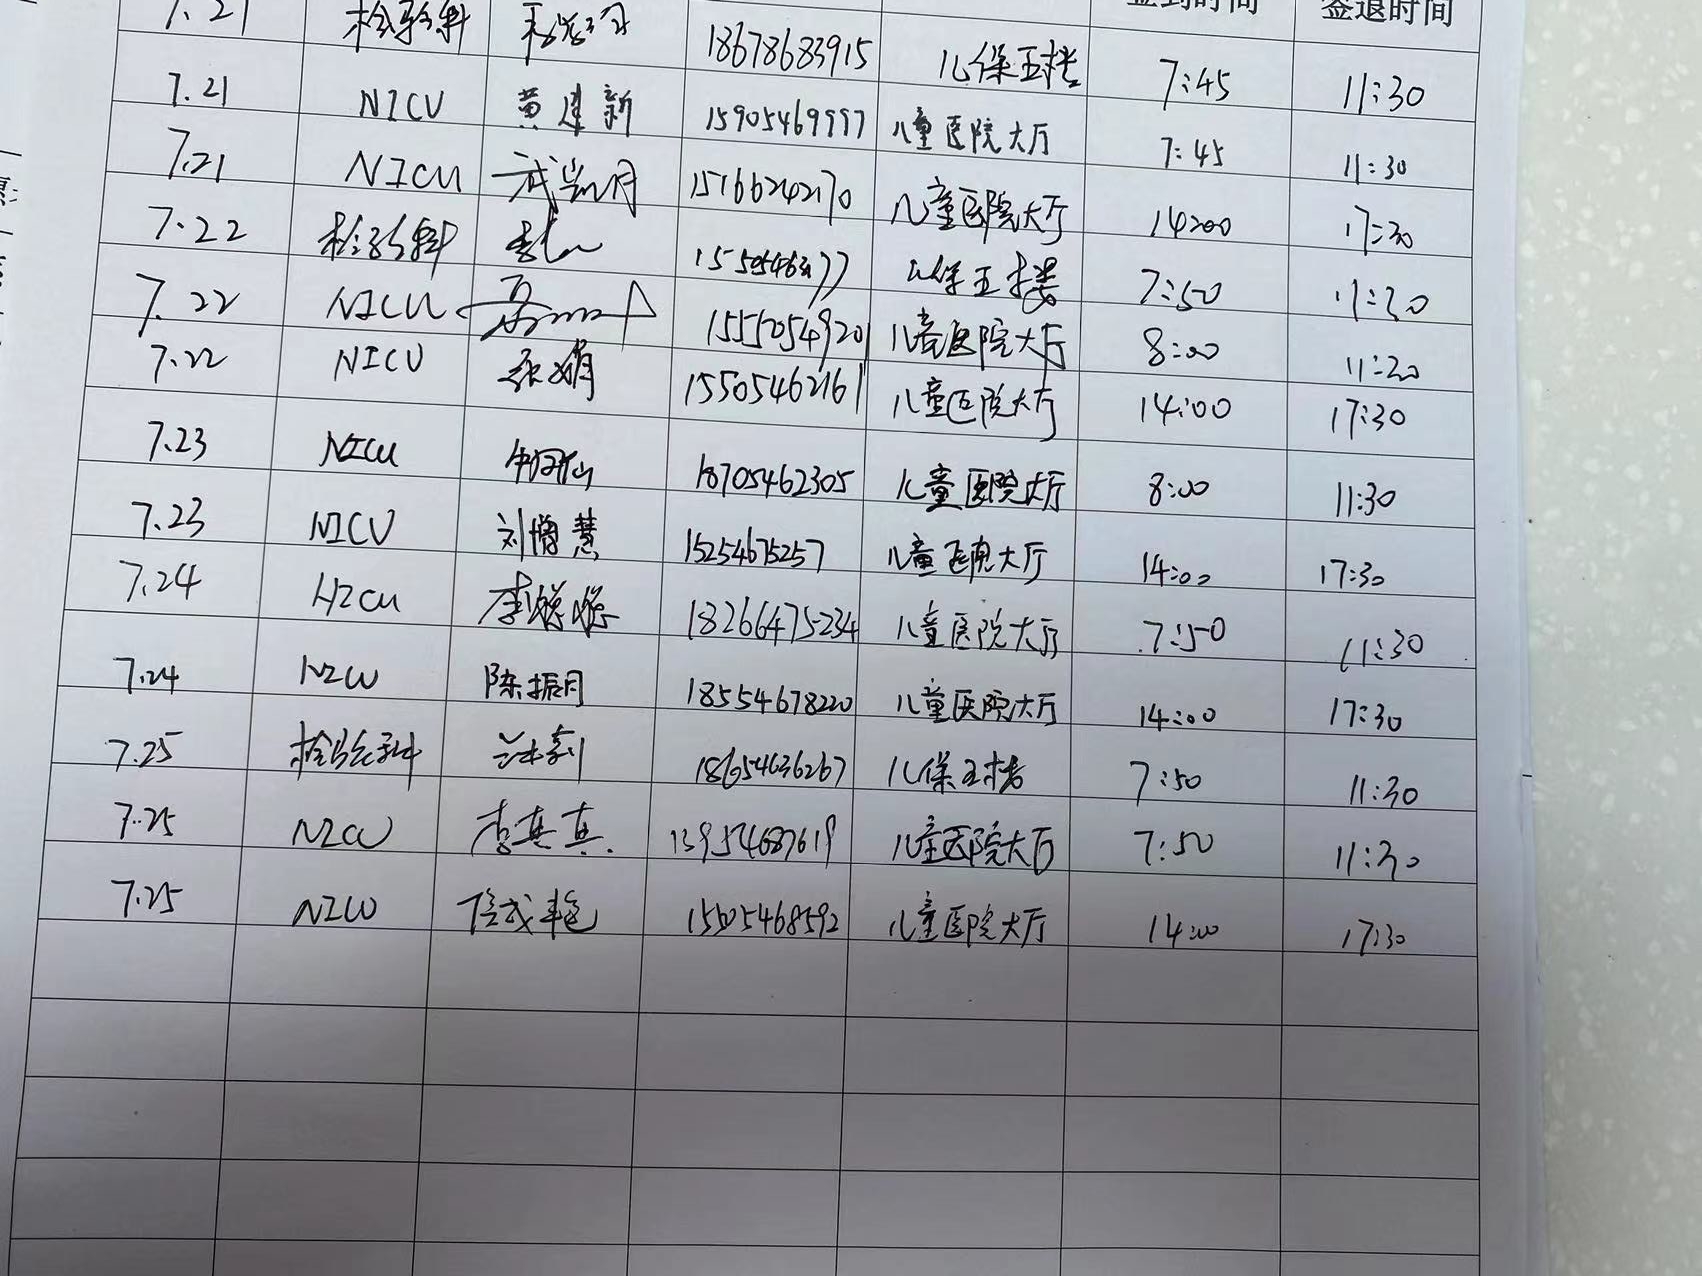 签到时间 签退时间
7.21 检验科 18678683915 儿保五楼 7:45 11:30
7.21 NICU 黄建新 15905469997 儿童医院大厅 7:45 11:30
7.21 NICU 15166242170 儿童医院大厅 14:00 17:30
7.22 检验科 儿保五楼 7:50 11:30
7.22 NICU 儿童医院大厅 8:00 11:20
7.22 NICU 张娟 15505462161 儿童医院大厅 14:00 17:30
7.23 NICU 18705462305 儿童医院大厅 8:00 11:30
7.23 NICU 刘增慧 15254675257 儿童医院大厅 14:00 17:30
7.24 NICU 18266475234 儿童医院大厅 7:50 11:30
7.24 NICU 陈振月 18554678220 儿童医院大厅 14:00 17:30
7.25 检验科 18654636267 儿保五楼 7:50 11:30
7.25 NICU 李真真 13954687619 儿童医院大厅 7:50 11:30
7.25 NICU 15505468592 儿童医院大厅 14:00 17:30